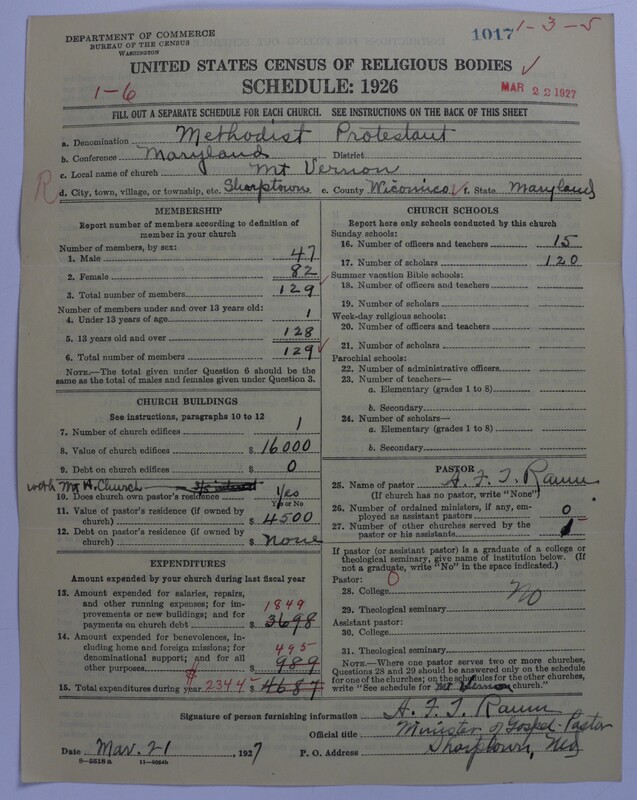 DEPARTMENT OF COMMERCE
BUREAU OF THE CENSUS
WASHINGTON
1017 1-3-5
UNITED STATES CENSUS OF RELIGIOUS BODIES ✓
SCHEDULE: 1926
1-6
MAR 22 1927
FILL OUT A SEPARATE SCHEDULE FOR EACH CHURCH. SEE INSTRUCTIONS ON THE BACK OF THIS SHEET
a. Denomination Methodist Protestant
b. Conference Maryland District
c. Local name of church Mt Vernon
R d. City, town, village, or township, etc. Sharptown e. County Wicomico ✓ f. State Maryland
MEMBERSHIP
Report number of members according to definition of
member in your church
Number of members, by sex:
1. Male 47
2. Female 82
3. Total number of members 129 ✓
Number of members under and over 13 years old:
4. Under 13 years of age 1
5. 13 years old and over 128
6. Total number of members 129 ✓
NOTE.—The total given under Question 6 should be
same as the total of males and females given under Question 3.
CHURCH BUILDINGS
See instructions, paragraphs 10 to 12
7. Number of church edifices 1
8. Value of church edifices $ 16000
9. Debt on church edifices $ 0
10. Does church own pastor's residence Yes
Yes or No
11. Value of pastor's residence (if owned by
church) $ 4500
12. Debt on pastor's residence (if owned by
church) $ None
EXPENDITURES
Amount expended by your church during last fiscal year
13. Amount expended for salaries, repairs,
and other running expenses; for im-
provements or new buildings; and for
payments on church debt $ 3698
1849
14. Amount expended for benevolences, in-
cluding home and foreign missions; for
denominational support; and for all
other purposes $ 989
495
15. Total expenditures during year $ 2344 $ 4687
CHURCH SCHOOLS
Report here only schools conducted by this church
Sunday schools:
16. Number of officers and teachers 15
17. Number of scholars 120
Summer vacation Bible schools:
18. Number of officers and teachers
19. Number of scholars
Week-day religious schools:
20. Number of officers and teachers
21. Number of scholars
Parochial schools:
22. Number of administrative officers
23. Number of teachers—
a. Elementary (grades 1 to 8)
b. Secondary
24. Number of scholars—
a. Elementary (grades 1 to 8)
b. Secondary
PASTOR
25. Name of pastor A. F. T. Raum
(If church has no pastor, write "None")
26. Number of ordained ministers, if any, em-
ployed as assistant pastors 0
27. Number of other churches served by the
pastor or his assistants
If pastor (or assistant pastor) is a graduate of a college or
theological seminary, give name of institution below. (If
not a graduate, write "No" in the space indicated.)
Pastor: 0
28. College No
29. Theological seminary
Assistant pastor:
30. College
31. Theological seminary
NOTE.—Where one pastor serves two or more churches,
Questions 28 and 29 should be answered only on the schedule
for one of the churches; on the schedules for the other churches,
write "See schedule for Mt Vernon church."
Signature of person furnishing information A. F. T. Raum
Official title Minister of Gospel-Pastor
Date Mar. 21, 1927 P. O. Address Sharptown, Md
8-5518a